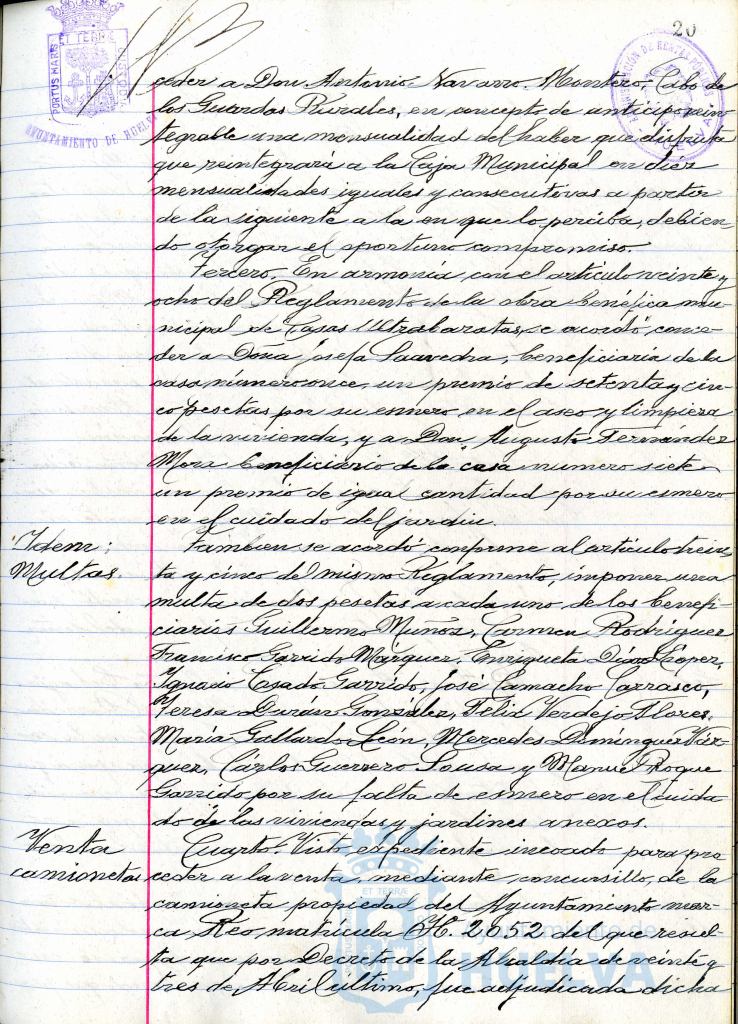 20
PORTUS MARIS ET TERRE CUSTODIA
AYUNTAMIENTO DE HUELVA
ceder a Don Antonio Navarro Montero, Cabo de
los Guardas Rurales, en concepto de anticipo rein
tegrable una mensualidad del haber que disfruta
que reintegrará a la Caja Municipal en diez
mensualidades iguales y consecutivas a partir
de la siguiente a la en que lo perciba, debien-
do otorgar el oportuno compromiso.
Tercero. En armonía con el artículo veinte y
ocho del Reglamento de la obra benéfica mu-
nicipal de Casas Ultrabaratas, se acordó, conce-
der a Doña Josefa Saavedra, beneficiaria de la
casa número once, un premio de setenta y cin-
co pesetas por su esmero en el aseo y limpieza
de la vivienda, y a Don Augusto Fernández
Mora beneficiario de la casa numero siete
un premio de igual cantidad por su esmero
en el cuidado del jardin.
Idem:
Multas.
Tambien se acordó conforme al artículo trein-
ta y cinco del mismo Reglamento, imponer una
multa de dos pesetas a cada uno de los benefi-
ciarios Guillermo Muñoz, Carmen Rodríguez
Francisco Garrido Márquez, Enriqueta Díaz López,
Ignacio Casado Garrido, José Camacho Carrasco,
Teresa Durán González, Felix Verdejo Flores,
María Gallardo León, Mercedes Domínguez Váz-
quez, Carlos Guerrero Sousa y Manuel Roque
Garrido por su falta de esmero en el cuida
do de las viviendas y jardines anexos.
Venta
camionetas
Cuarto. Visto expediente incoado para pro
ceder a la venta, mediante concursillo, de la
camioneta propiedad del Ayuntamiento mar-
ca Reo, matrícula H. 2052 del que resul-
ta que por Decreto de la Alcaldía de veinte y
tres de Abril último, fue adjudicada dicha
ET TERRÆ
Ayuntamiento de
HUELVA